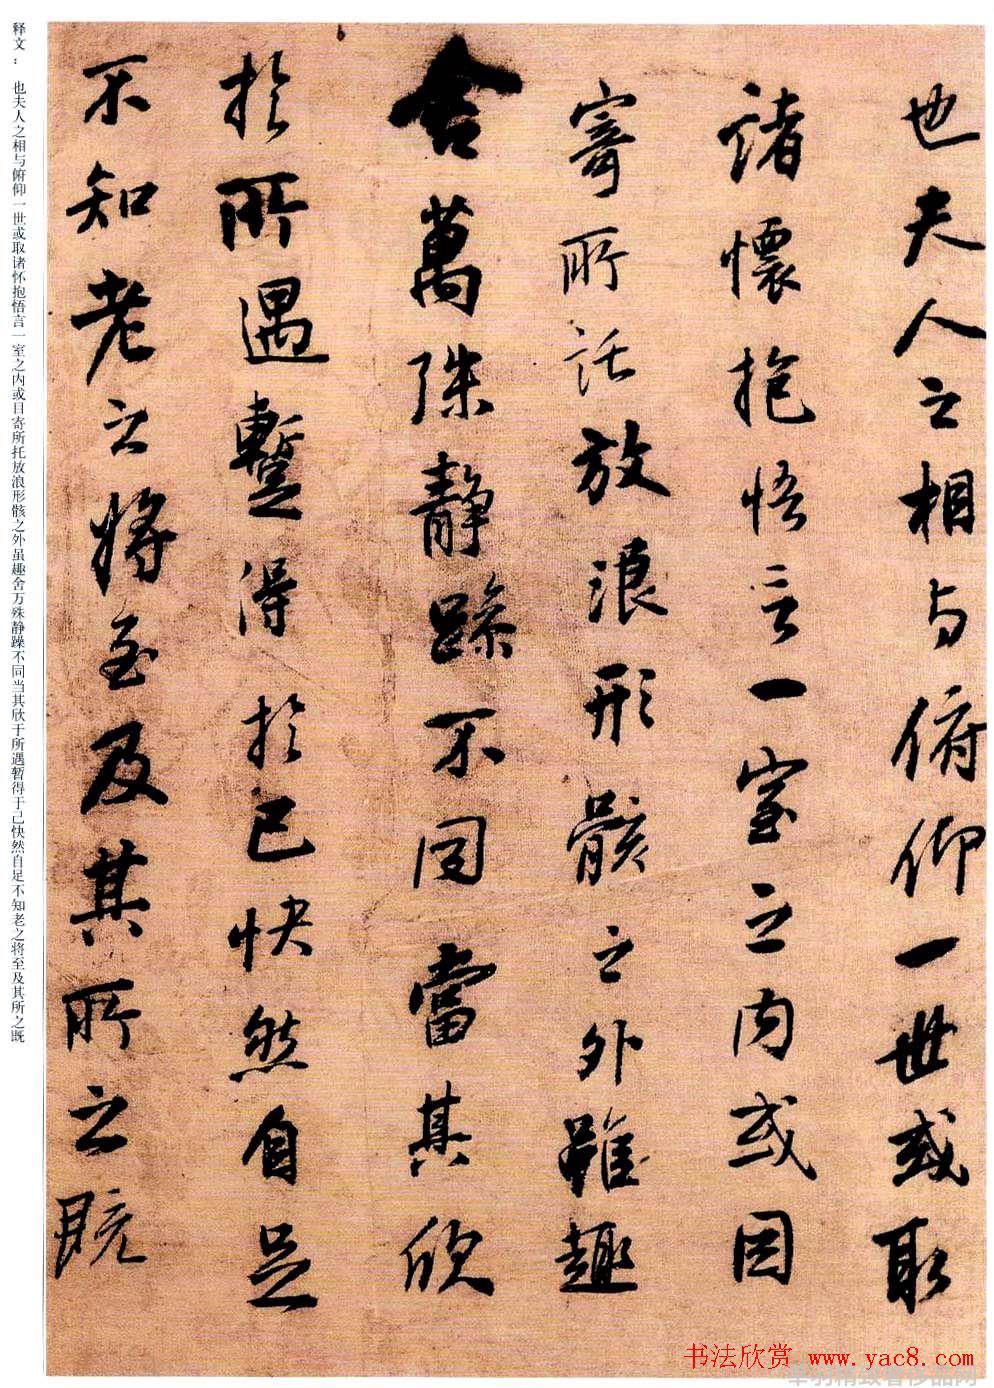 也夫人之相与俯仰一世或取
諸懷抱悟言一室之内或因
寄所託放浪形骸之外雖趣
舍萬殊静躁不同當其欣
於所遇蹔得於己快然自足
不知老之將至及其所之既
释文：也夫人之相与俯仰一世或取诸怀抱悟言一室之内或目寄所托放浪形骸之外虽趣舍万殊静躁不同当其欣于所遇暂得于己快然自足不知老之将至及其所之既
书法欣赏 www.yac8.com